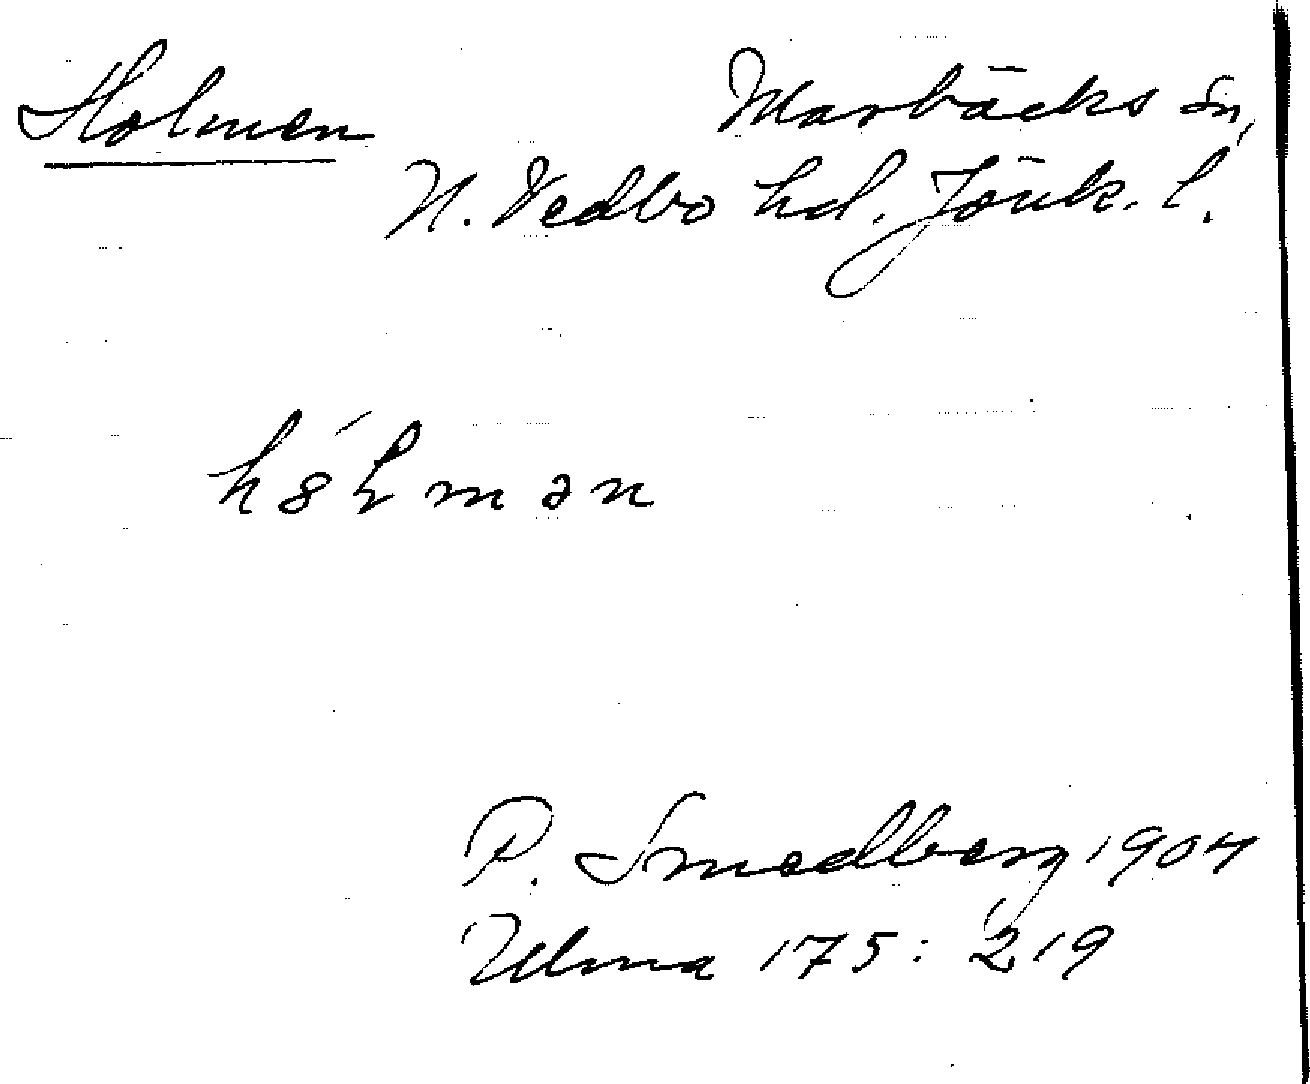 Holmen Marbäcks sn,
N. Vedbo hd. Jönk. l.
hȣ́ɫmən
P. Smedberg 1904
Ulma 175: 219